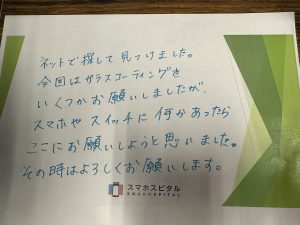 ネットで探して見つけました。
今回はガラスコーティングを
いくつかお願いしましたが、
スマホやスイッチに何かあったら
ここにお願いしようと思いました。
その時はよろしくお願いします。
スマホスピタル
SMAHOSPITAL